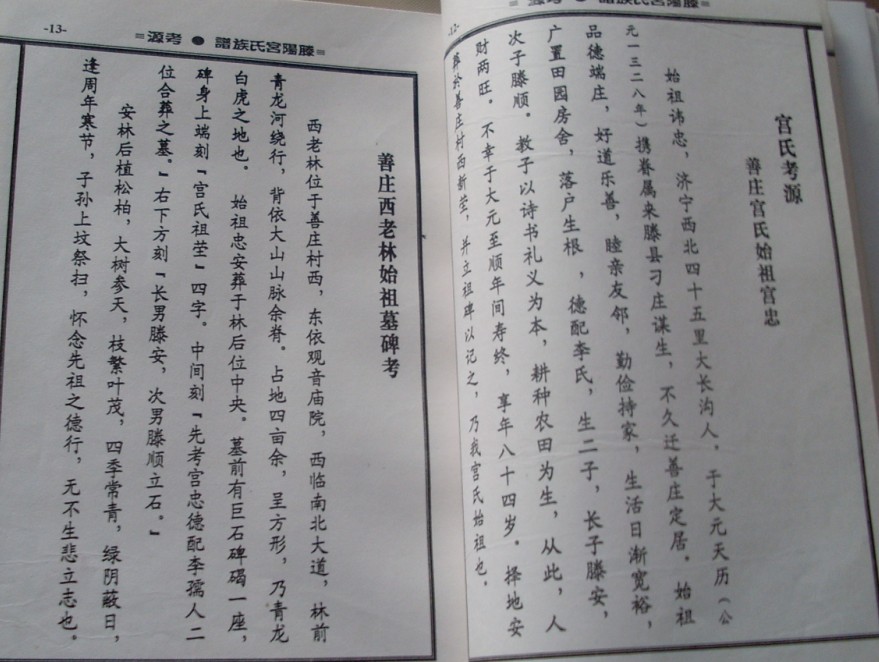 -12-
滕陽宮氏族譜 ● 考源
宫氏考源
善庄宫氏始祖宫忠
始祖讳忠，济宁西北四十五里大长沟人。于大元天历（公
元一三二八年）携眷属来滕县刁庄谋生，不久迁善庄定居。始祖
品德端庄，好道乐善，睦亲友邻，勤俭持家，生活日渐宽裕，
广置田园房舍，落户生根，德配李氏，生二子，长子滕安，
次子滕顺。教子以诗书礼义为本，耕种农田为生，从此，人
财两旺。不幸于大元至顺年间寿终，享年八十四岁。择地安
葬於善庄村西新茔，并立祖碑以记之，乃我宫氏始祖也。
-13-
滕陽宮氏族譜 ● 考源
善庄西老林始祖墓碑考
西老林位于善庄村西，东依观音庙院，西临南北大道，林前
青龙河绕行，背依大山山脉余脊。占地四亩余，呈方形，乃青龙
白虎之地也。始祖忠安葬于林后位中央。墓前有巨石碑碣一座，
碑身上端刻『宫氏祖茔』四字。中间刻『先考宫忠德配李孺人二
位合葬之墓。』右下方刻『长男滕安，次男滕顺立石。』
安林后植松柏，大树参天，枝繁叶茂，四季常青，绿阴蔽日，
逢周年寒节，子孙上坟祭扫，怀念先祖之德行，无不生悲立志也。